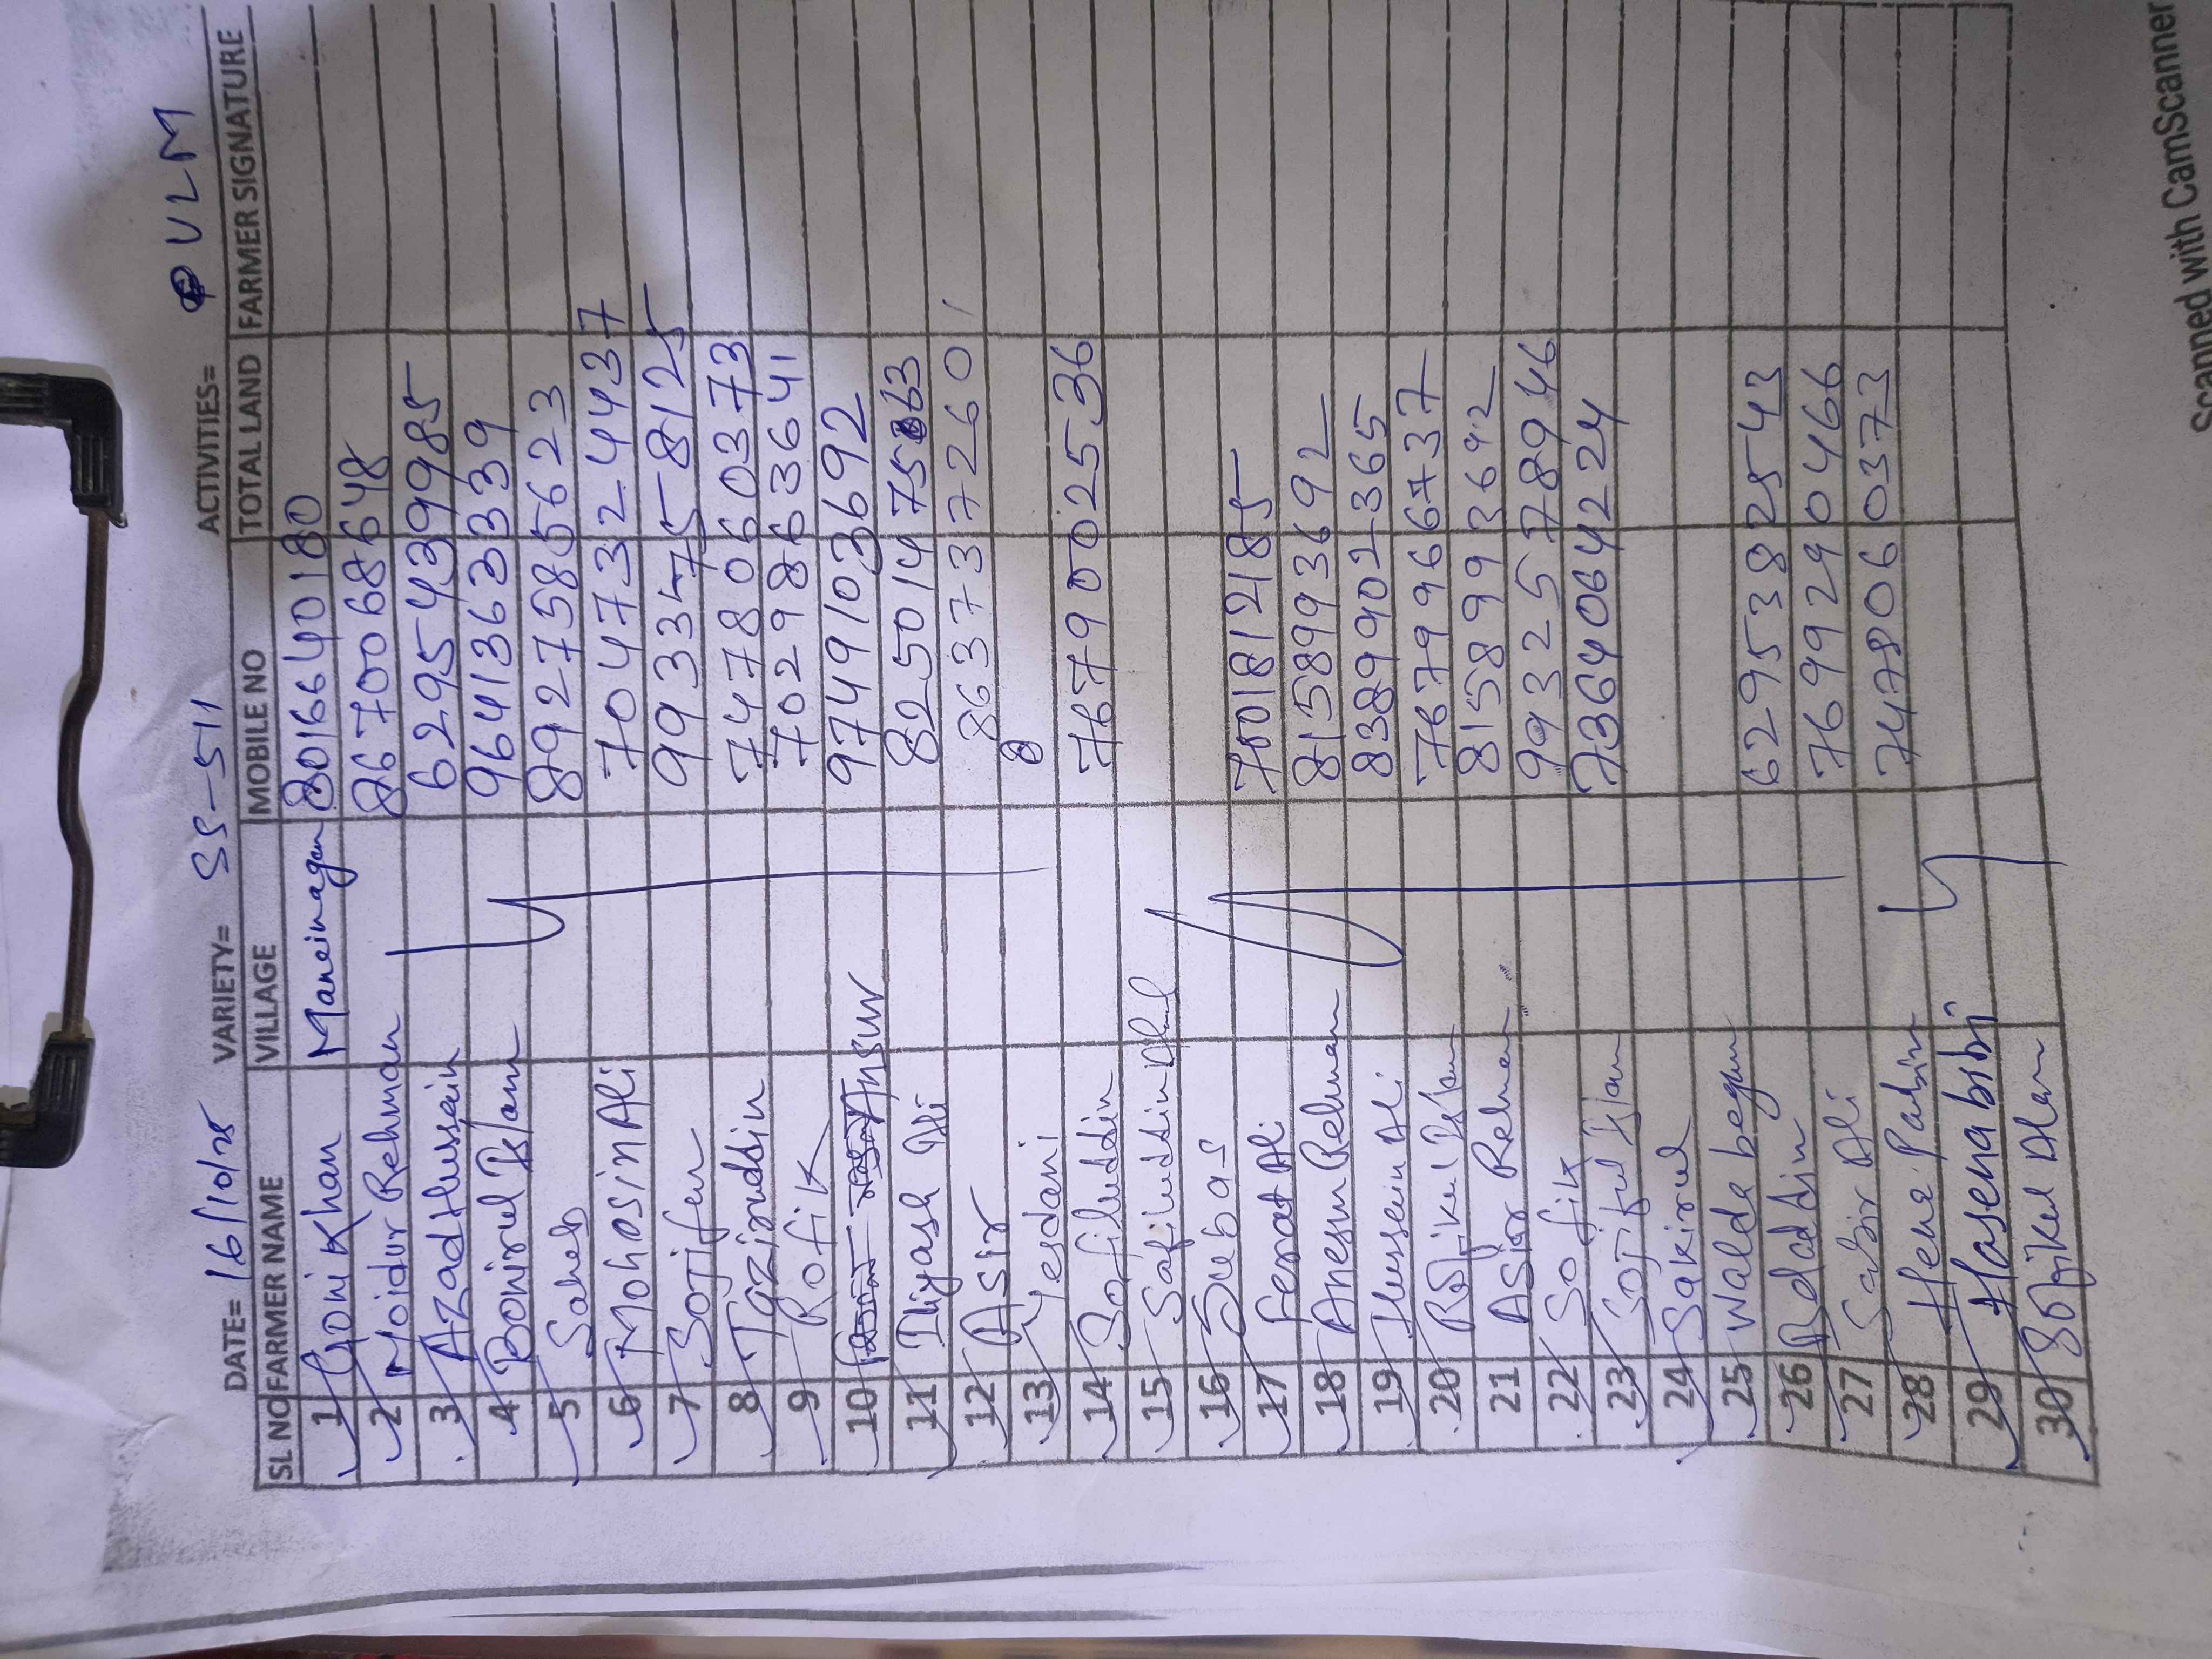 DATE= 16/10/25 VARIETY= SS-511 ACTIVITIES= ULM
SL NO FARMER NAME VILLAGE MOBILE NO TOTAL LAND FARMER SIGNATURE
1 Goni Khan 8016640180
2 Moidur Rehman 8670068648
3 Azad Hussain 6295439985
4 Bonirul Islam 9641363339
5 Saheb 8927585623
6 Mohosin Ali 7047324437
7 Sojifur 99334758125
8 Tazimuddin 7478060373
9 Rofik 7029863641
10 Ansur 9749103692
11 Iliyash Ali 8250147563
12 Asir 8637372601
13 Yesdani 8
14 Sofiluddin 7679002536
15 Safiluddin
16 Subas
17 Ali 701812185
18 Anesur Rehman 8158993692
19 Hussain Ali 8389902365
20 Rofikul Islam 7679966737
21 Asir Rehman 8158993692
22 Sofik 9932578946
23 Sofiful Islam 7364064224
24 Sakirul
25 Walda begum
26 6295382543
27 Sabir Ali 7699290466
28 7478060373
29 Hasena bibi
30 Alam
Scanned with CamScanner